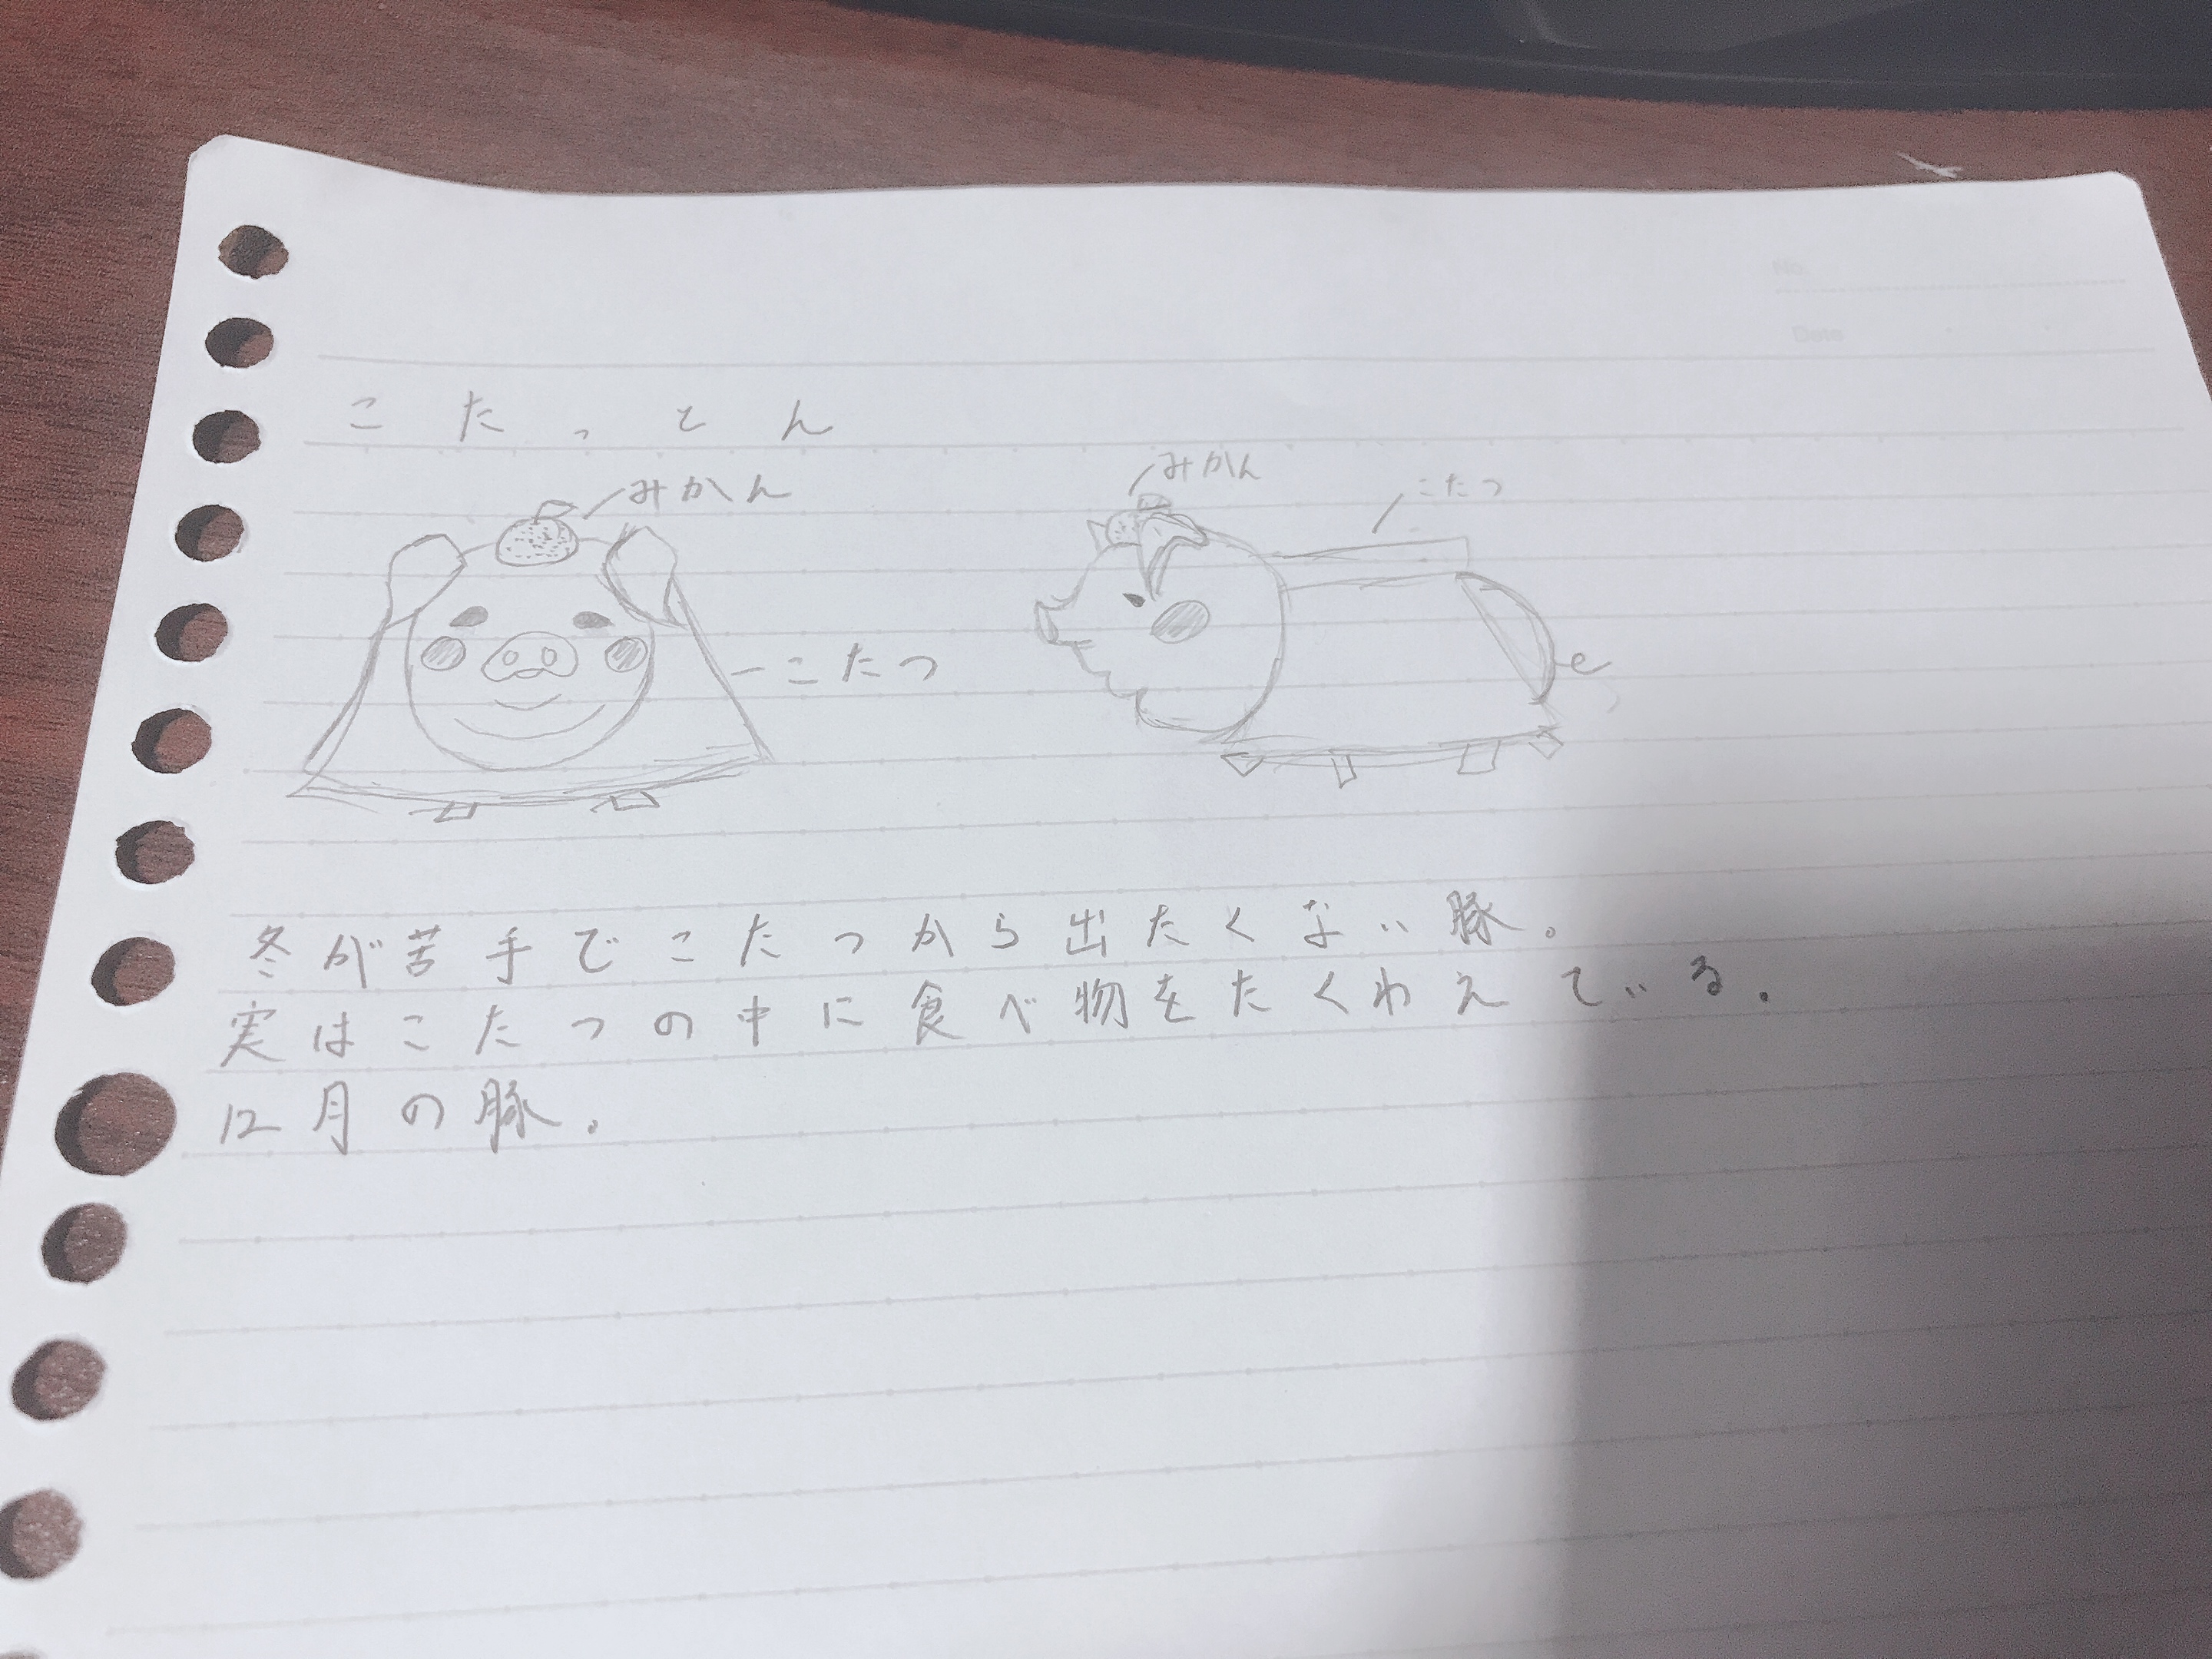 No.
Date
こたっとん
みかん
こたつ
みかん
こたつ
冬が苦手でこたつから出たくない豚。
実はこたつの中に食べ物をたくわえている.
12月の豚.